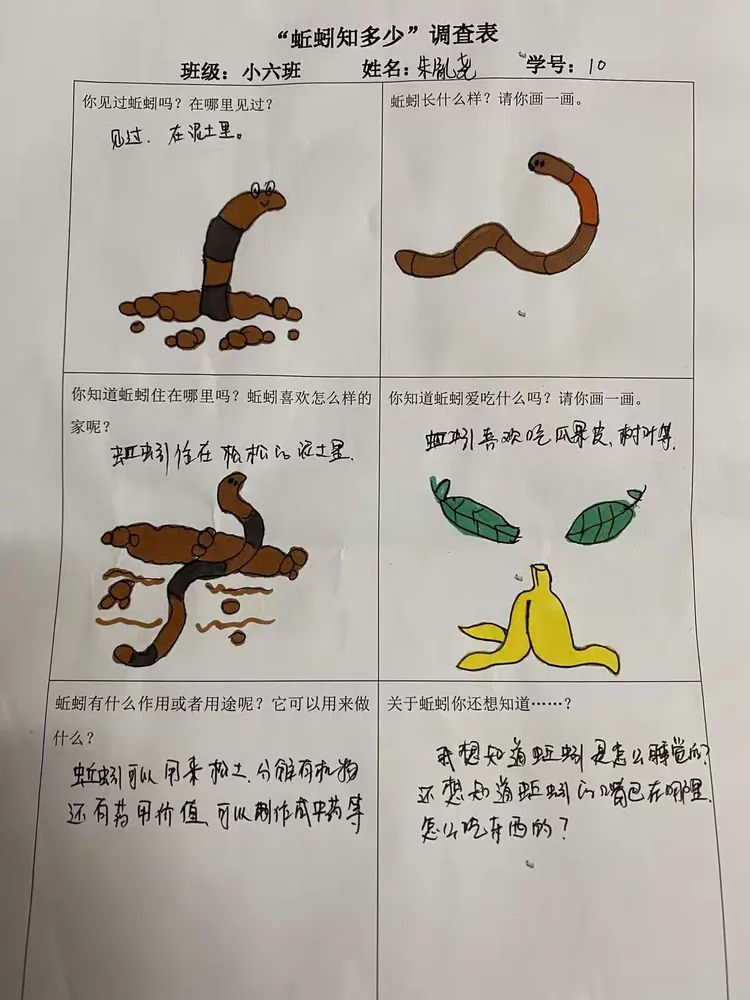 “蚯蚓知多少”调查表
班级：小六班 姓名：朱胤尧 学号：10
你见过蚯蚓吗？在哪里见过？
见过．在泥土里。
蚯蚓长什么样？请你画一画。
你知道蚯蚓住在哪里吗？蚯蚓喜欢怎么样的
家呢？
蚯蚓住在松松的泥土里．
你知道蚯蚓爱吃什么吗？请你画一画。
蚯蚓喜欢吃瓜果皮、树叶等．
蚯蚓有什么作用或者用途呢？它可以用来做
什么？
蚯蚓可以用来松土．分解有机物
还有药用价值、可以制作成中药等
关于蚯蚓你还想知道……？
我想知道蚯蚓是怎么睡觉的？
还想知道蚯蚓的嘴巴在哪里．
怎么吃东西的？